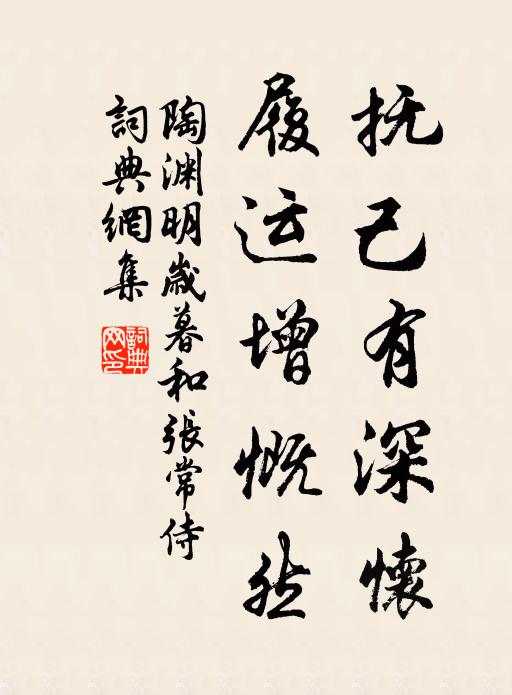 抚己有深懷
履运增慨然
陶渊明歲暮和張常侍
詞典網集
詞典网印